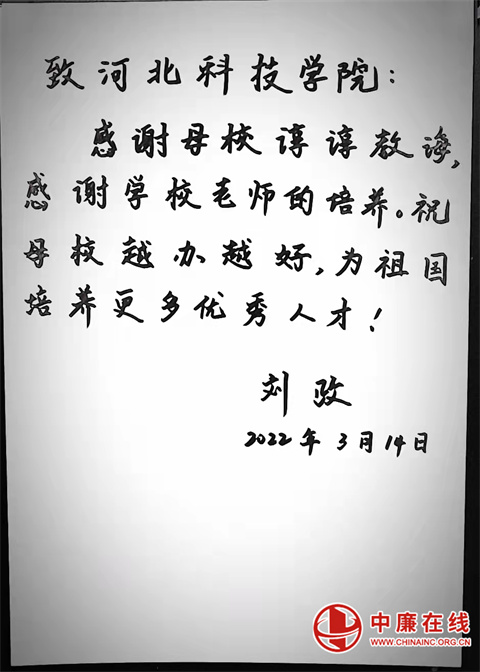 致河北科技学院:
感谢母校谆谆教诲,
感谢学校老师的培养。祝
母校越办越好,为祖国
培养更多优秀人才!
刘政
2022年3月14日
中廉在线
WWW.CHINAINC.ORG.CN